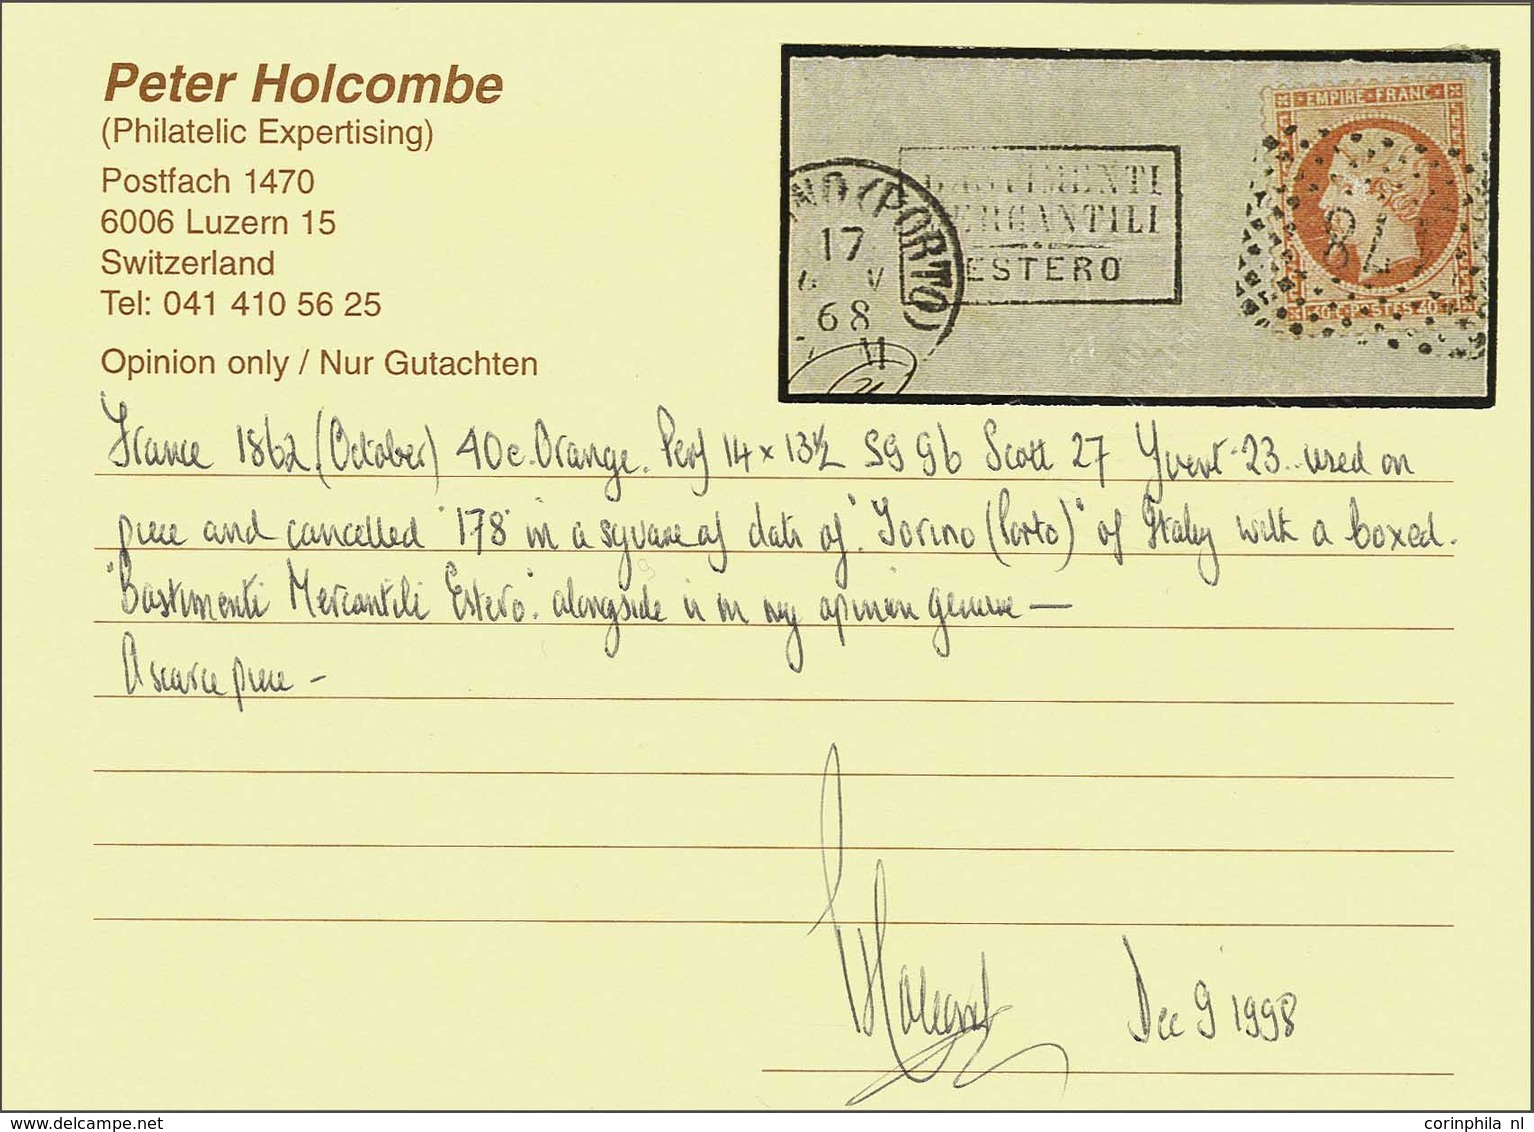 Peter Holcombe
(Philatelic Expertising)
Postfach 1470
6006 Luzern 15
Switzerland
Tel: 041 410 56 25
Opinion only / Nur Gutachten
INO (PORTO)
17
68
BASTIMENTI
MERCANTILI
ESTERO
EMPIRE FRANC
178
40 C POSTES 40
France 1862 (October) 40c. Orange. Perf 14 x 13½ SG 96 Scott 27 Yvert 23. used on
piece and cancelled "178" in a square of dots of "Torino (Porto)" of Italy with a boxed.
"Bastimenti Mercantili Estero". alongside is in my opinion genuine —
A scarce piece -
Holcombe
Dec 9 1998
delcampe.net
corinphila nl